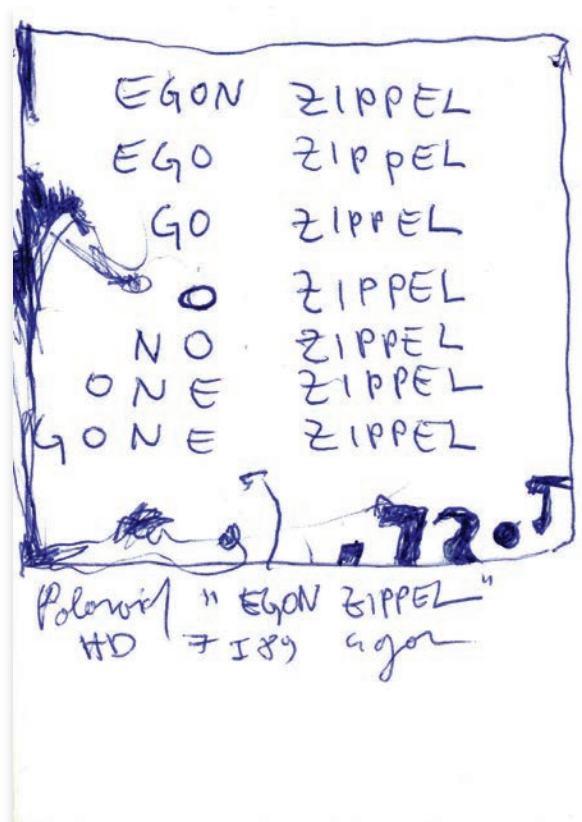 EGON ZIPPEL
EGO ZIPPEL
GO ZIPPEL
O ZIPPEL
NO ZIPPEL
ONE ZIPPEL
GONE ZIPPEL
Polaroid "EGON ZIPPEL"
HD 7 I 89 egon